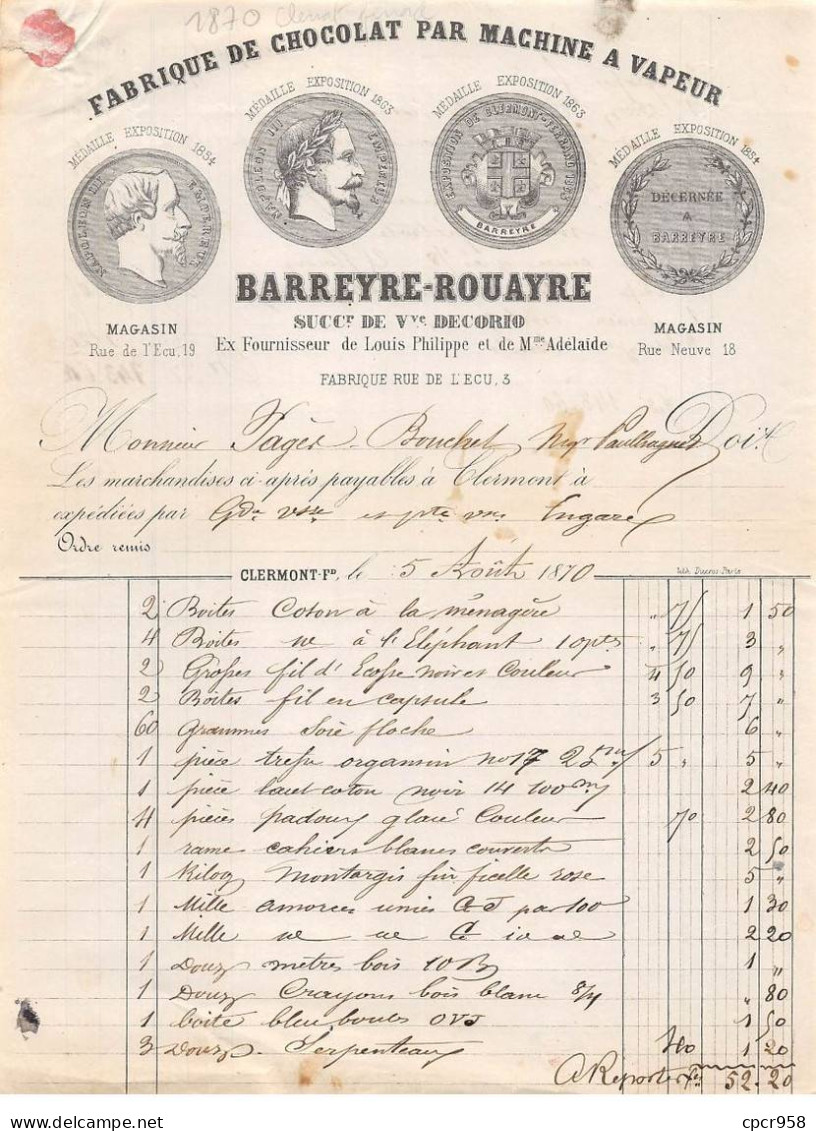 1870 Clermont ferrand
FABRIQUE DE CHOCOLAT PAR MACHINE A VAPEUR
MÉDAILLE EXPOSITION 1854
MÉDAILLE EXPOSITION 1863
MÉDAILLE EXPOSITION 1863
MÉDAILLE EXPOSITION 1854
NAPOLEON III EMPEREUR
NAPOLEON III EMPEREUR
EXPOSITION DE CLERMONT-FERRAND 1863
BARREYRE
DÉCERNÉE
A
BARREYRE
BARREYRE-ROUAYRE
SUCCr DE Vve DECORIO
Ex Fournisseur de Louis Philippe et de Mme Adélaide
MAGASIN
Rue de l'Ecu, 19
MAGASIN
Rue Neuve 18
FABRIQUE RUE DE L'ECU, 3
Monsieur Pagès-Bouchet Doit
Les marchandises ci-après payables à Clermont à
expédiées par Gde vsse et pte
Ordre remis
CLERMONT-Fd, le 5 Août 1870
Lith. Ducros Paris
2 Boites Coton à la ménagère " 75 1 50
4 Boites à l'Eléphant 10 pts " 75 3 "
2 Grosses fil d'Ecosse noir et Couleur 4 50 9 "
2 Boites fil en capsule 3 50 7 "
60 grammes Soie floche 6 "
1 pièce organsin no 17 5 " 5 "
1 pièce lacet coton noir 14 100 m 2 40
4 pièces padoux glacé Couleur 70 2 80
1 rame cahiers blancs couverts 2 50
1 Kilog Montargis fin ficelle rose 5 "
1 Mille amorces unies par 100 1 30
1 Mille 2 20
1 Douz mètres bois 10 B 1 "
1 Douz Crayons bois blanc " 80
1 boite bleu boules 1 50
3 Douz Serpenteaux 40 1 20
A Reporter 52.20
cpcr958